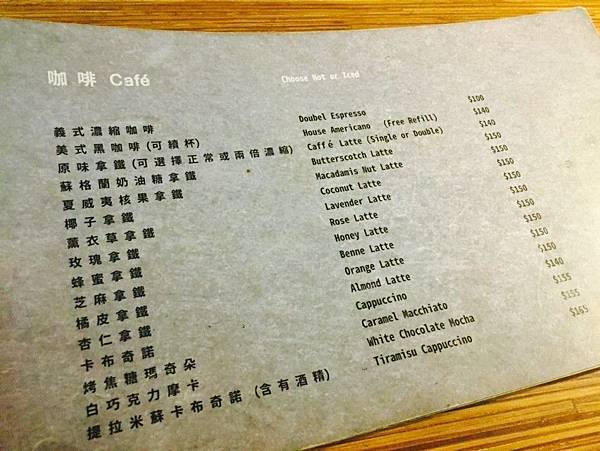 咖啡 Café
Choose Hot or Iced
義式濃縮咖啡
美式黑咖啡(可續杯)
原味拿鐵(可選擇正常或兩倍濃縮)
蘇格蘭奶油糖拿鐵
夏威夷核果拿鐵
椰子拿鐵
薰衣草拿鐵
玫瑰拿鐵
蜂蜜拿鐵
芝麻拿鐵
橘皮拿鐵
杏仁拿鐵
卡布奇諾
烤焦糖瑪奇朵
白巧克力摩卡
提拉米蘇卡布奇諾 (含有酒精)
Doubel Espresso
House Americano (Free Refill)
Caffé Latte (Single or Double)
Butterscotch Latte
Macadamis Nut Latte
Coconut Latte
Lavender Latte
Rose Latte
Honey Latte
Benne Latte
Orange Latte
Almond Latte
Cappuccino
Caramel Macchiato
White Chocolate Mocha
Tiramisu Cappuccino
$100
$140
$140
$150
$150
$150
$150
$150
$150
$150
$150
$150
$140
$155
$155
$165